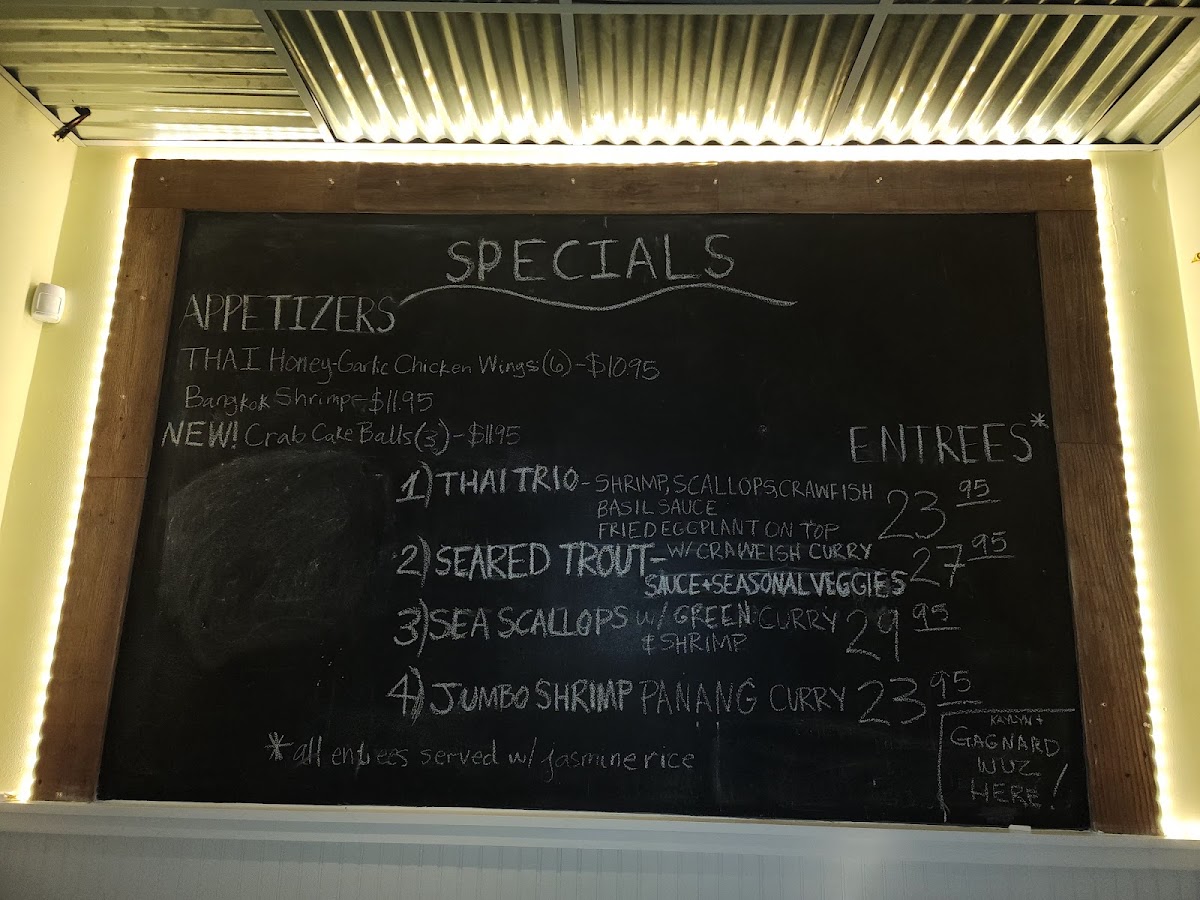 SPECIALS
APPETIZERS
THAI Honey-Garlic Chicken Wings (6) - $10.95
Bangkok Shrimp - $11.95
NEW! Crab Cake Balls (3) - $11.95
ENTREES*
1) THAI TRIO - SHRIMP, SCALLOPS, CRAWFISH 23 95
BASIL SAUCE
FRIED EGGPLANT ON TOP
2) SEARED TROUT - W/ CRAWFISH CURRY 27 95
SAUCE + SEASONAL VEGGIES
3) SEA SCALLOPS w/ GREEN CURRY 29 95
& SHRIMP
4) JUMBO SHRIMP PANANG CURRY 23 95
*all entrees served w/ Jasmine rice
KAYLYN +
GAGNARD
WUZ
HERE!